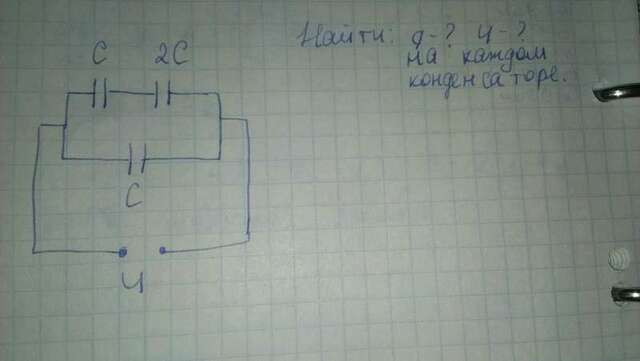 Найти: q-? U-?
на каждом
конденсаторе.
C 2C
C
U